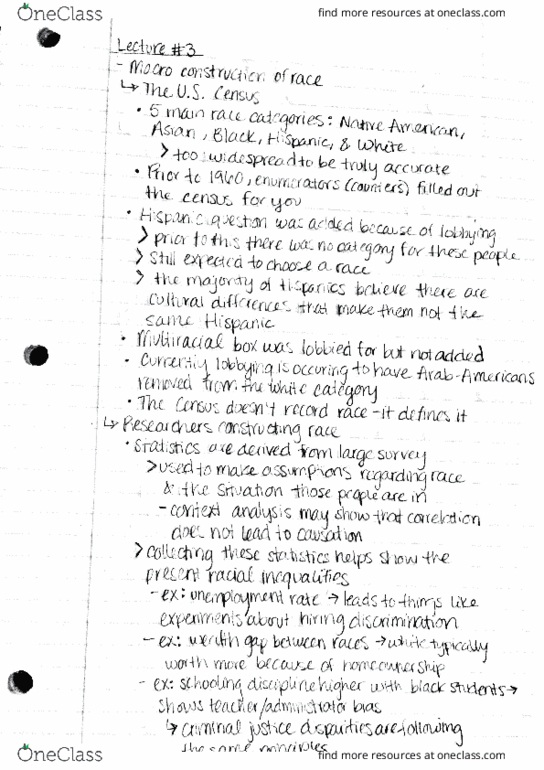 OneClass
find more resources at oneclass.com
Lecture #3
- Macro construction of race
↳ The U.S. Census
• 5 main race categories: Native American,
Asian, Black, Hispanic, & White
> too widespread to be truly accurate
• Prior to 1960, enumerators (counters) filled out
the census for you
• Hispanic question was added because of lobbying
> prior to this there was no category for these people
> still expected to choose a race
> the majority of Hispanics believe there are
cultural differences that make them not the
same Hispanic
• Multiracial box was lobbied for but not added
• Currently lobbying is occuring to have Arab-Americans
removed from the white category
• The Census doesn't record race - it defines it
↳ Researchers constructing race
• Statistics are derived from large survey
> used to make assumptions regarding race
& the situation those people are in
- context analysis may show that correlation
does not lead to causation
> collecting these statistics helps show the
present racial inequalities
- ex: unemployment rate → leads to things like
experiments about hiring discrimination
- ex: wealth gap between races → white typically
worth more because of homeownership
- ex: schooling discipline higher with black students →
shows teacher/administrator bias
↳ criminal justice disparities are following
the same principles
OneClass
find more resources at oneclass.com